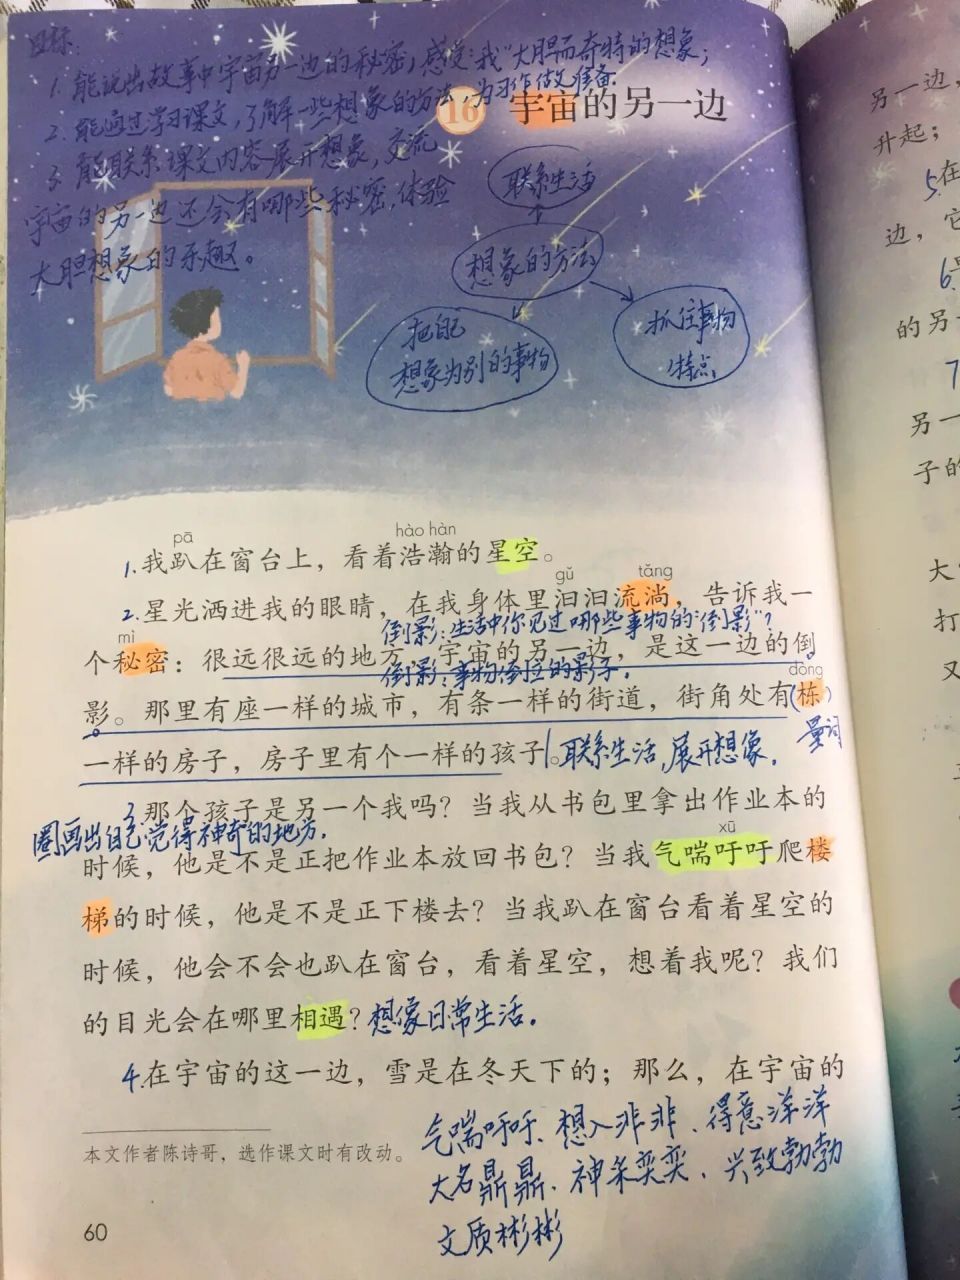 目标:
1. 能说出故事中宇宙另一边的秘密,感受“我”大胆而奇特的想象;
2. 能通过学习课文,了解一些想象的方法,为习作做准备.
3. 能联系课文内容展开想象,交流
宇宙的另一边还会有哪些秘密,体验
大胆想象的乐趣。
16 宇宙的另一边
联系生活
想象的方法
把自己
想象为别的事物
抓住事物
特点
pā hào hàn
1.我趴在窗台上，看着浩瀚的星空。
gǔ tǎng
2.星光洒进我的眼睛，在我身体里汩汩流淌，告诉我一
倒影:生活中你见过哪些事物的“倒影”?
mì
个秘密：很远很远的地方，宇宙的另一边，是这一边的倒
倒影:事物倒立的影子.
dòng
影。那里有座一样的城市，有条一样的街道，街角处有(栋)
量词
一样的房子，房子里有个一样的孩子。
1.联系生活,展开想像.
3.那个孩子是另一个我吗？当我从书包里拿出作业本的
圈画出自己觉得神奇的地方.
时候，他是不是正把作业本放回书包？当我气喘吁吁爬楼
xū
梯的时候，他是不是正下楼去？当我趴在窗台看着星空的
时候，他会不会也趴在窗台，看着星空，想着我呢？我们
的目光会在哪里相遇？想像日常生活。
4.在宇宙的这一边，雪是在冬天下的；那么，在宇宙的
本文作者陈诗哥，选作课文时有改动。
气喘吁吁、想入非非、得意洋洋
大名鼎鼎、神采奕奕、兴致勃勃
文质彬彬
60
另一边，
升起；
5.在
边，它
6.
的另
7
另一
子的
大
打
又